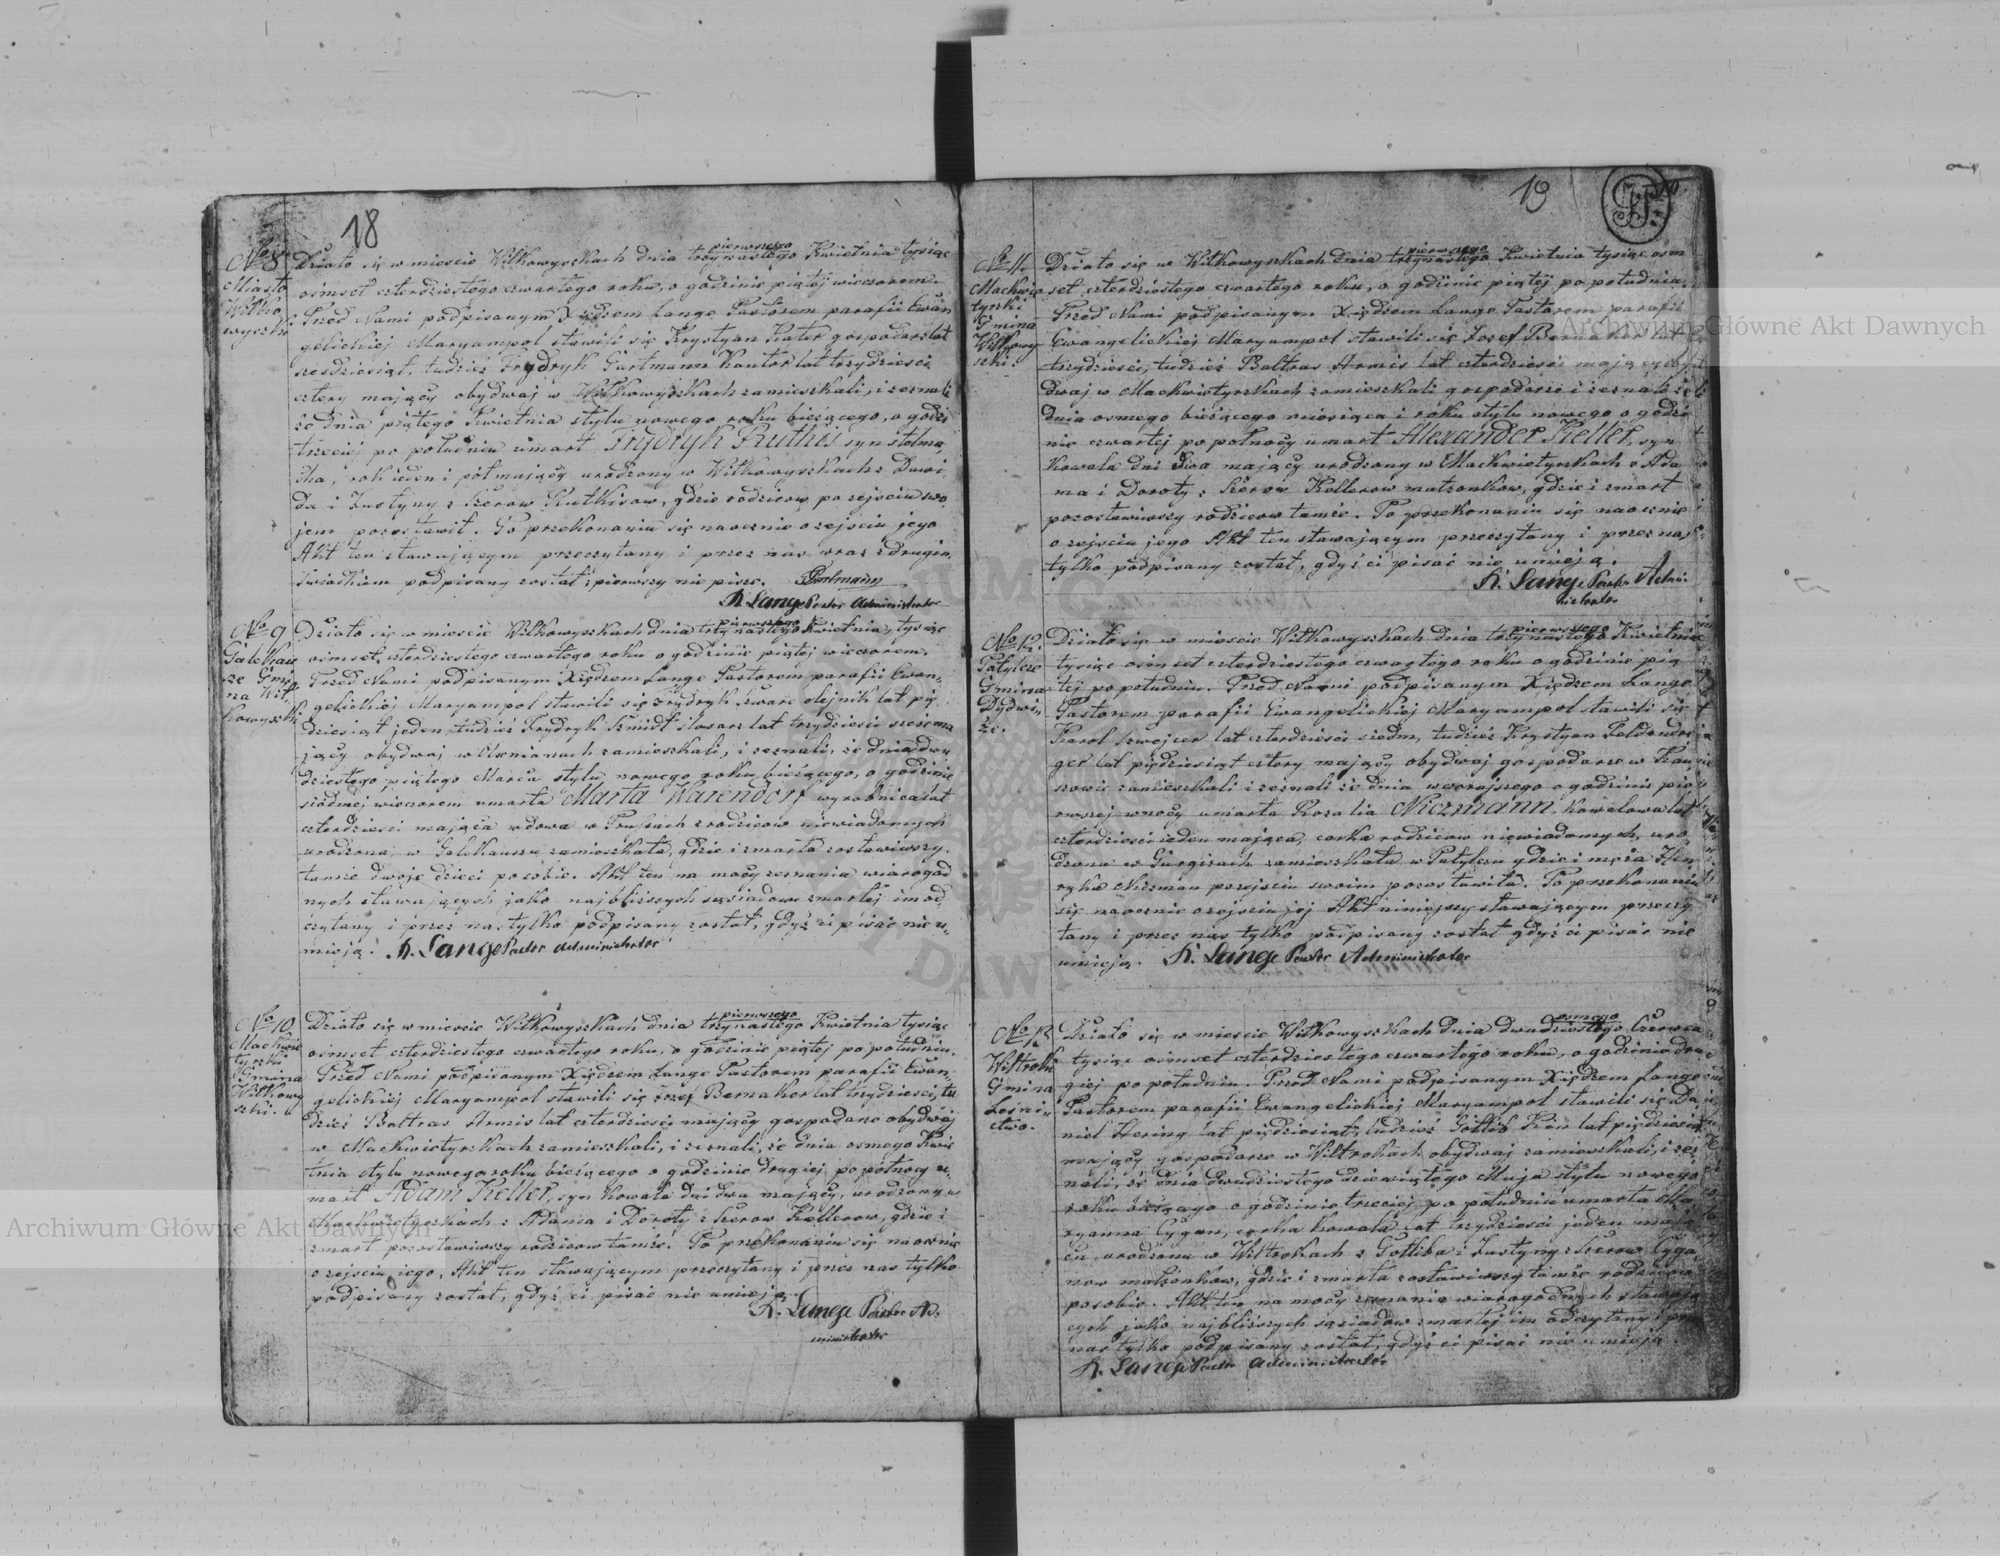 18
No 8.
Miasto
Wiłko
wyszki
Działo się w mieście Wiłkowyszkach dnia pierwszego/trzynastego Kwietnia tysiąc
ośmset czterdziestego czwartego roku, o godzinie piątej wieczorem.
Przed Nami podpisanym Xiędzem Lange Pastorem parafii Ewan
gelickiej Maryampol stawili się Krystyan Kater gospodarz lat
sześdziesiąt, tudzież Frydryk Gurtmann Kantor lat trzydzieści
cztery mający obydwaj w Wiłkowyszkach zamieszkali, i zeznali
że dnia piątego Kwietnia stylu nowego roku bieżącego, o godzi
trzeciej po południu umarł Frydryk Ruthis syn stolma
cha, rok ieden i pół mający urodzony w Wiłkowyszkach z Dawi
da i Justyny z Szerow Rutkisow, gdzie rodzicow po zejściu swo
jem pozostawił. Po przekonaniu się naocznie o zejściu jego
Akt ten stawającym przeczytany i przez nas wraz z drugim
świadkiem podpisany został, pierwszy nie pisze.
K. Lange Pastor Administrator
No 9
Galchau
ze Gmi
na Wił
kowyszki
Działo się w mieście Wiłkowyszkach dnia pierwszego/trzynastego Kwietnia, tysiąc
ośmset czterdziestego czwartego roku o godzinie piątej wieczorem,
Przed Nami podpisanym Xiędzem Lange Pastorem parafii Ewan
gelickiej Maryampol stawili się Frydryk Szwarc olejnik lat pię
dziesiąt jeden, tudzież Frydryk Szmidt slosarz lat trzydzieści sześć ma
jący obydwaj w zamieszkali, i zeznali, że dnia dwu
dziestego piątego Marca stylu nowego roku bieżącego, o godzinie
siódmej wieczorem umarła Marta Warendorf wyrobnica lat
czterdzieści mająca wdowa w Prusach z rodziców niewiadomych
urodzona, w Galchauzu zamieszkała, gdzie i zmarła zostawiwszy
tamże dwoje dzieci po sobie. Akt ten na mocy zeznania wiarogod
nych stawających jako najbliższych sąsiadow zmarłej im od
czytany i przez nas tylko podpisany został, gdyż ci pisać nie u
mieją. K. Lange Pastor Administrator
No 10.
Machwie
tyszki
Gmina
Wiłkowy
szki.
Działo się w mieście Wiłkowyszkach dnia pierwszego/trzynastego Kwietnia tysiąc
ośmset czterdziestego czwartego roku, o godzinie piątej po południu.
Przed Nami podpisanym Xiędzem Lange Pastorem parafii Ewan
gelickiej Maryampol stawili się Jozef Bernaker lat trzydzieści, tu
dzież Baltras Armis lat czterdzieści mający gospodarze obydwaj
w Machwietyszkach zamieszkali, i zeznali, że dnia osmego Kwie
tnia stylu nowego roku bieżącego o godzinie drugiej po północy u
marł Adam Keller, syn kowala dni dwa mający, urodzony w
Machwietyszkach z Adama i Doroty z Szerow Kellerow, gdzie i
zmarł pozostawiwszy rodzicow tamże. Po przekonaniu się naocznie
o zejściu jego, Akt ten stawającym przeczytany i przez nas tylko
podpisany został, gdyż ci pisać nie umieją.
K. Lange Pastor Ad
ministrator
19
No 11.
Machwie
tyszki
Gmina
Wiłkowy
szki.
Działo się w Wiłkowyszkach dnia pierwszego/trzynastego Kwietnia tysiąc ośm
set czterdziestego czwartego roku, o godzinie piątej po południu,
Przed Nami podpisanym Xiędzem Lange Pastorem parafii
Ewangelickiej Maryampol stawili się Jozef Bernaker lat
trzydzieści, tudzież Baltras Armis lat czterdzieści mający oby
dwaj w Machwietyszkach zamieszkali gospodarze i zeznali że
dnia osmego bieżącego miesiąca i roku stylu nowego o godzi
nie czwartej po północy umarł Alexander Keller, syn
kowala dni dwa mający urodzony w Machwietyszkach z Ada
ma i Doroty z Szerow Kellerow małżonkow, gdzie i zmarł
pozostawiwszy rodzicow tamże. Po przekonaniu się naocznie
o zejściu jego Akt ten stawającym przeczytany i przez nas
tylko podpisany został, gdyż ci pisać nie umieją.
K. Lange Pastor Admi
nistrator
No 12.
Gmina
Dydwi
że.
Działo się w mieście Wiłkowyszkach dnia pierwszego/trzynastego Kwietnia
tysiąc ośmset czterdziestego czwartego roku o godzinie pią
tej po południu. Przed Nami podpisanym Xiędzem Lange
Pastorem parafii Ewangelickiej Maryampol stawili się
Karol Szwejcer lat czterdzieści siedm, tudzież Krystyan
ger lat pięćdziesiąt cztery mający obydwaj gospodarze w
zamieszkali i zeznali że dnia wczorajszego o godzinie pie
rwszej w nocy umarła Rozalia Niczmann, kowalowa lat
czterdzieści ieden mająca, corka rodzicow niewiadomych, uro
dzona w Gurgiszach zamieszkała w gdzie i męża Hen
ryka Niczman po zejściu swoim pozostawiła. Po przekonaniu
się naocznie o zejściu jej Akt niniejszy stawającym przeczy
tany i przez nas tylko podpisany został gdyż ci pisać nie
umieją. K. Lange Pastor Administrator
No 13
Wiłtroki
Gmina
Leśni
ctwo.
Działo się w mieście Wiłkowyszkach dnia osmego/dwudziestego Czerwca
tysiąc ośmset czterdziestego czwartego roku, o godzinie dru
giej po południu. Przed Nami podpisanym Xiędzem Lange
Pastorem parafii Ewangelickiej Maryampol stawili się Da
niel Hering lat pięćdziesiąt, tudzież Gotlib lat pięćdziesiąt
mający gospodarze w Wiłtrokach obydwaj zamieszkali, i zez
nali, że dnia dwudziestego dziewiątego Maja stylu nowego
roku bieżącego o godzinie trzeciej po południu umarła Ma
ryanna Cygan, corka kowala lat trzydzieści jeden mają
ca, urodzona w Wiłtrokach z Gotliba i Justyny z Szerow Cyga
now małżonkow, gdzie i zmarła zostawiwszy tamże rodzicow
po sobie. Akt ten na mocy zeznania wiarogodnych stawają
cych jako najbliższych sąsiadow zmarłej im odczytany i przez
nas tylko podpisany został, gdyż ci pisać nie umieją.
K. Lange Pastor Administrator
Archiwum Główne Akt Dawnych
Archiwum Główne Akt Dawnych